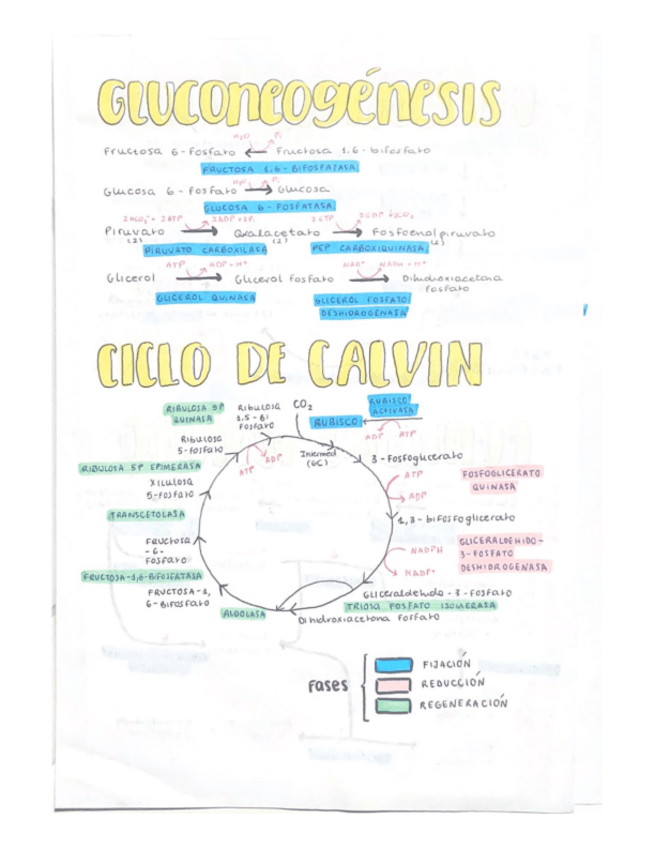 GLUCONEOGÉNESIS
H₂O Pi
Fructosa 6-fosfato ← Fructosa 1,6-bifosfato
FRUCTOSA 1,6-BIFOSFATASA
H₂O Pi
Glucosa 6-fosfato → Glucosa
GLUCOSA 6-FOSFATASA
2HCO₃⁻ + 2ATP 2ADP + 2Pi 2GTP 2GDP + 2CO₂
Piruvato (2) → Oxalacetato (2) → Fosfoenolpiruvato (2)
PIRUVATO CARBOXILASA PEP CARBOXIQUINASA
ATP ADP + H⁺ NAD⁺ NADH + H⁺
Glicerol → Glicerol fosfato → Dihidroxiacetona
fosfato
GLICEROL QUINASA GLICEROL FOSFATO
DESHIDROGENASA
CICLO DE CALVIN
RIBULOSA 5P
QUINASA
Ribulosa
1,5-bi
fosfato
CO₂
RUBISCO
RUBISCO
ACTIVASA
ADP ATP
Ribulosa
5-fosfato
ATP ADP
Intermed
(6C)
3-fosfoglicerato
RIBULOSA 5P EPIMERASA
ATP
ADP
FOSFOGLICERATO
QUINASA
XILULOSA
5-fosfato
TRANSCETOLASA
1,3-bifosfoglicerato
FRUCTOSA
-6-
fosfato
NADPH
NADP⁺
GLICERALDEHIDO-
3-FOSFATO
DESHIDROGENASA
FRUCTOSA-1,6-BIFOSFATASA
FRUCTOSA-1,
6-Bifosfato
Gliceraldehido-3-fosfato
TRIOSA FOSFATO ISOMERASA
ALDOLASA
Dihidroxiacetona fosfato
FASES
FIJACIÓN
REDUCCIÓN
REGENERACIÓN